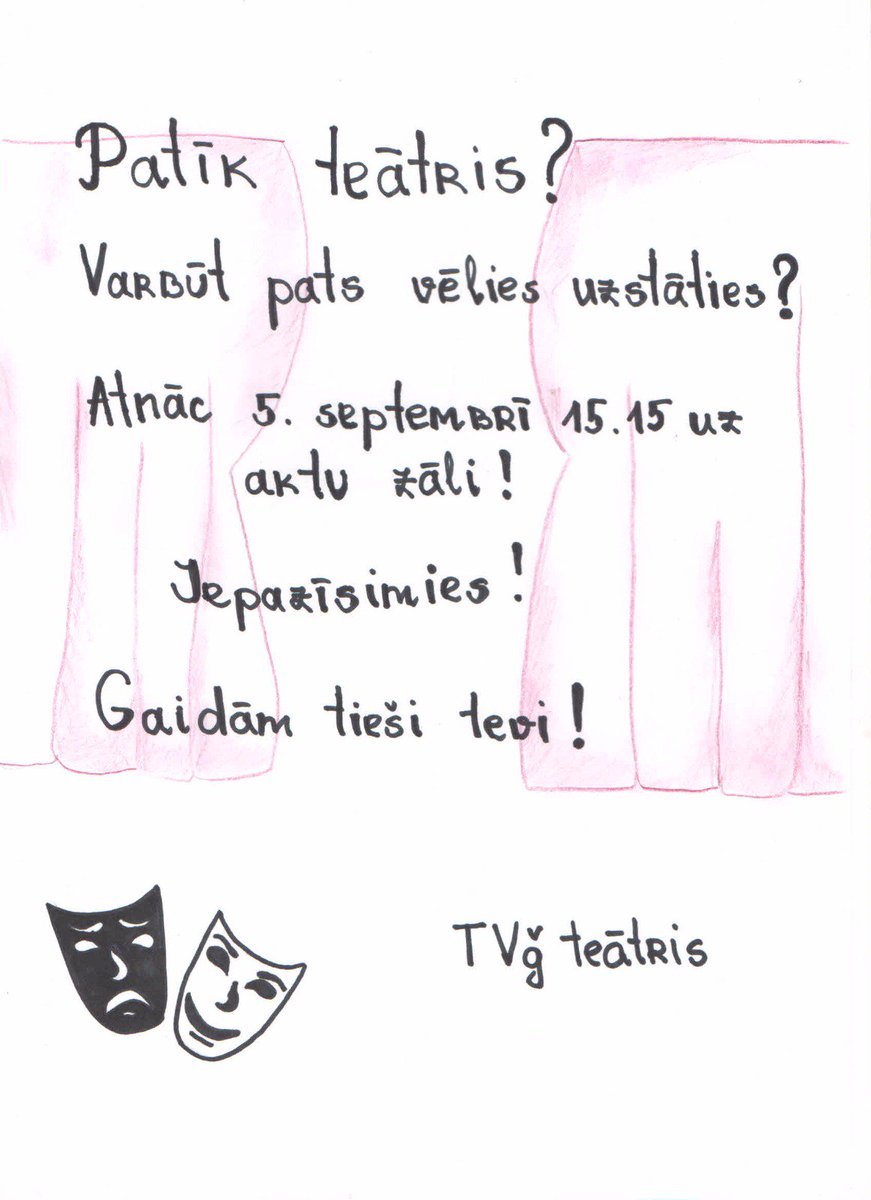 Patīk teātris?
Varbūt pats vēlies uzstāties?
Atnāc 5. septembrī 15.15 uz
aktu zāli!
Iepazīsimies!
Gaidām tieši tevi!
TVģ teātris